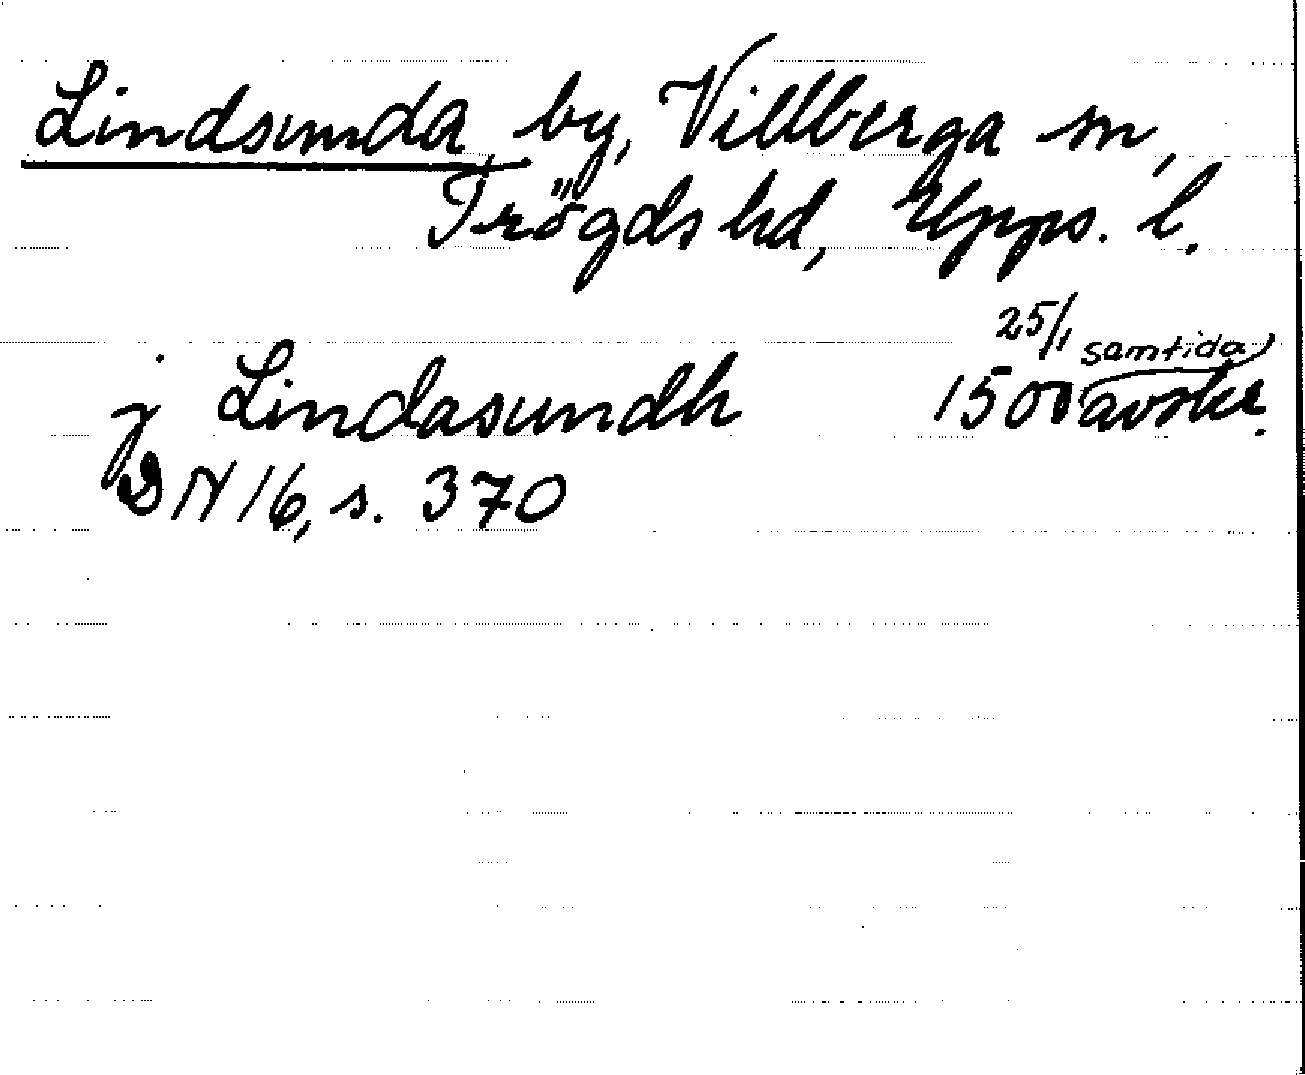 Lindsunda, by, Villberga sn,
Trögds hd, Upps. l.
j Lindasundh 25/1 1500 samtida avskr.
DN 16, s. 370